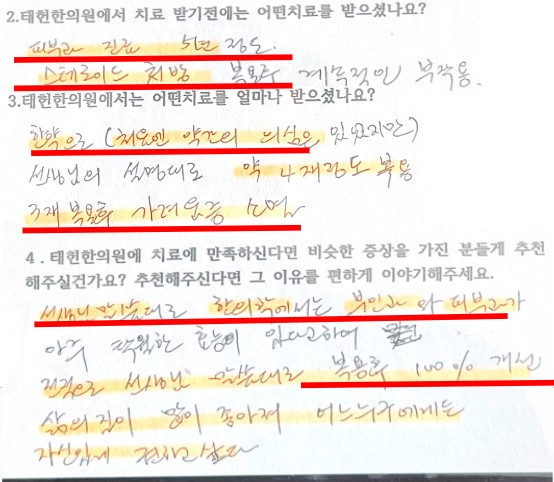 2.태헌한의원에서 치료 받기전에는 어떤치료를 받으셨나요?
피부과 진료 5년 정도.
스테로이드 처방 복용후 계속적인 부작용.
3.태헌한의원에서는 어떤치료를 얼마나 받으셨나요?
한약으로 (처음엔 약간의 의심은 있었지만)
선생님의 설명대로 약 4재정도 복용
3재 복용후 가려움증 소멸
4. 태헌한의원에 치료에 만족하신다면 비슷한 증상을 가진 분들게 추천
해주실건가요? 추천해주신다면 그 이유를 편하게 이야기해주세요.
선생님 말씀대로 한의학에서는 부인과와 피부과가
아주 탁월한 효능이 있다고하여
전적으로 선생님 말씀대로 복용후 100% 개선
삶의 질이 많이 좋아져 어느누구에게든
자신있게 권하고 싶다